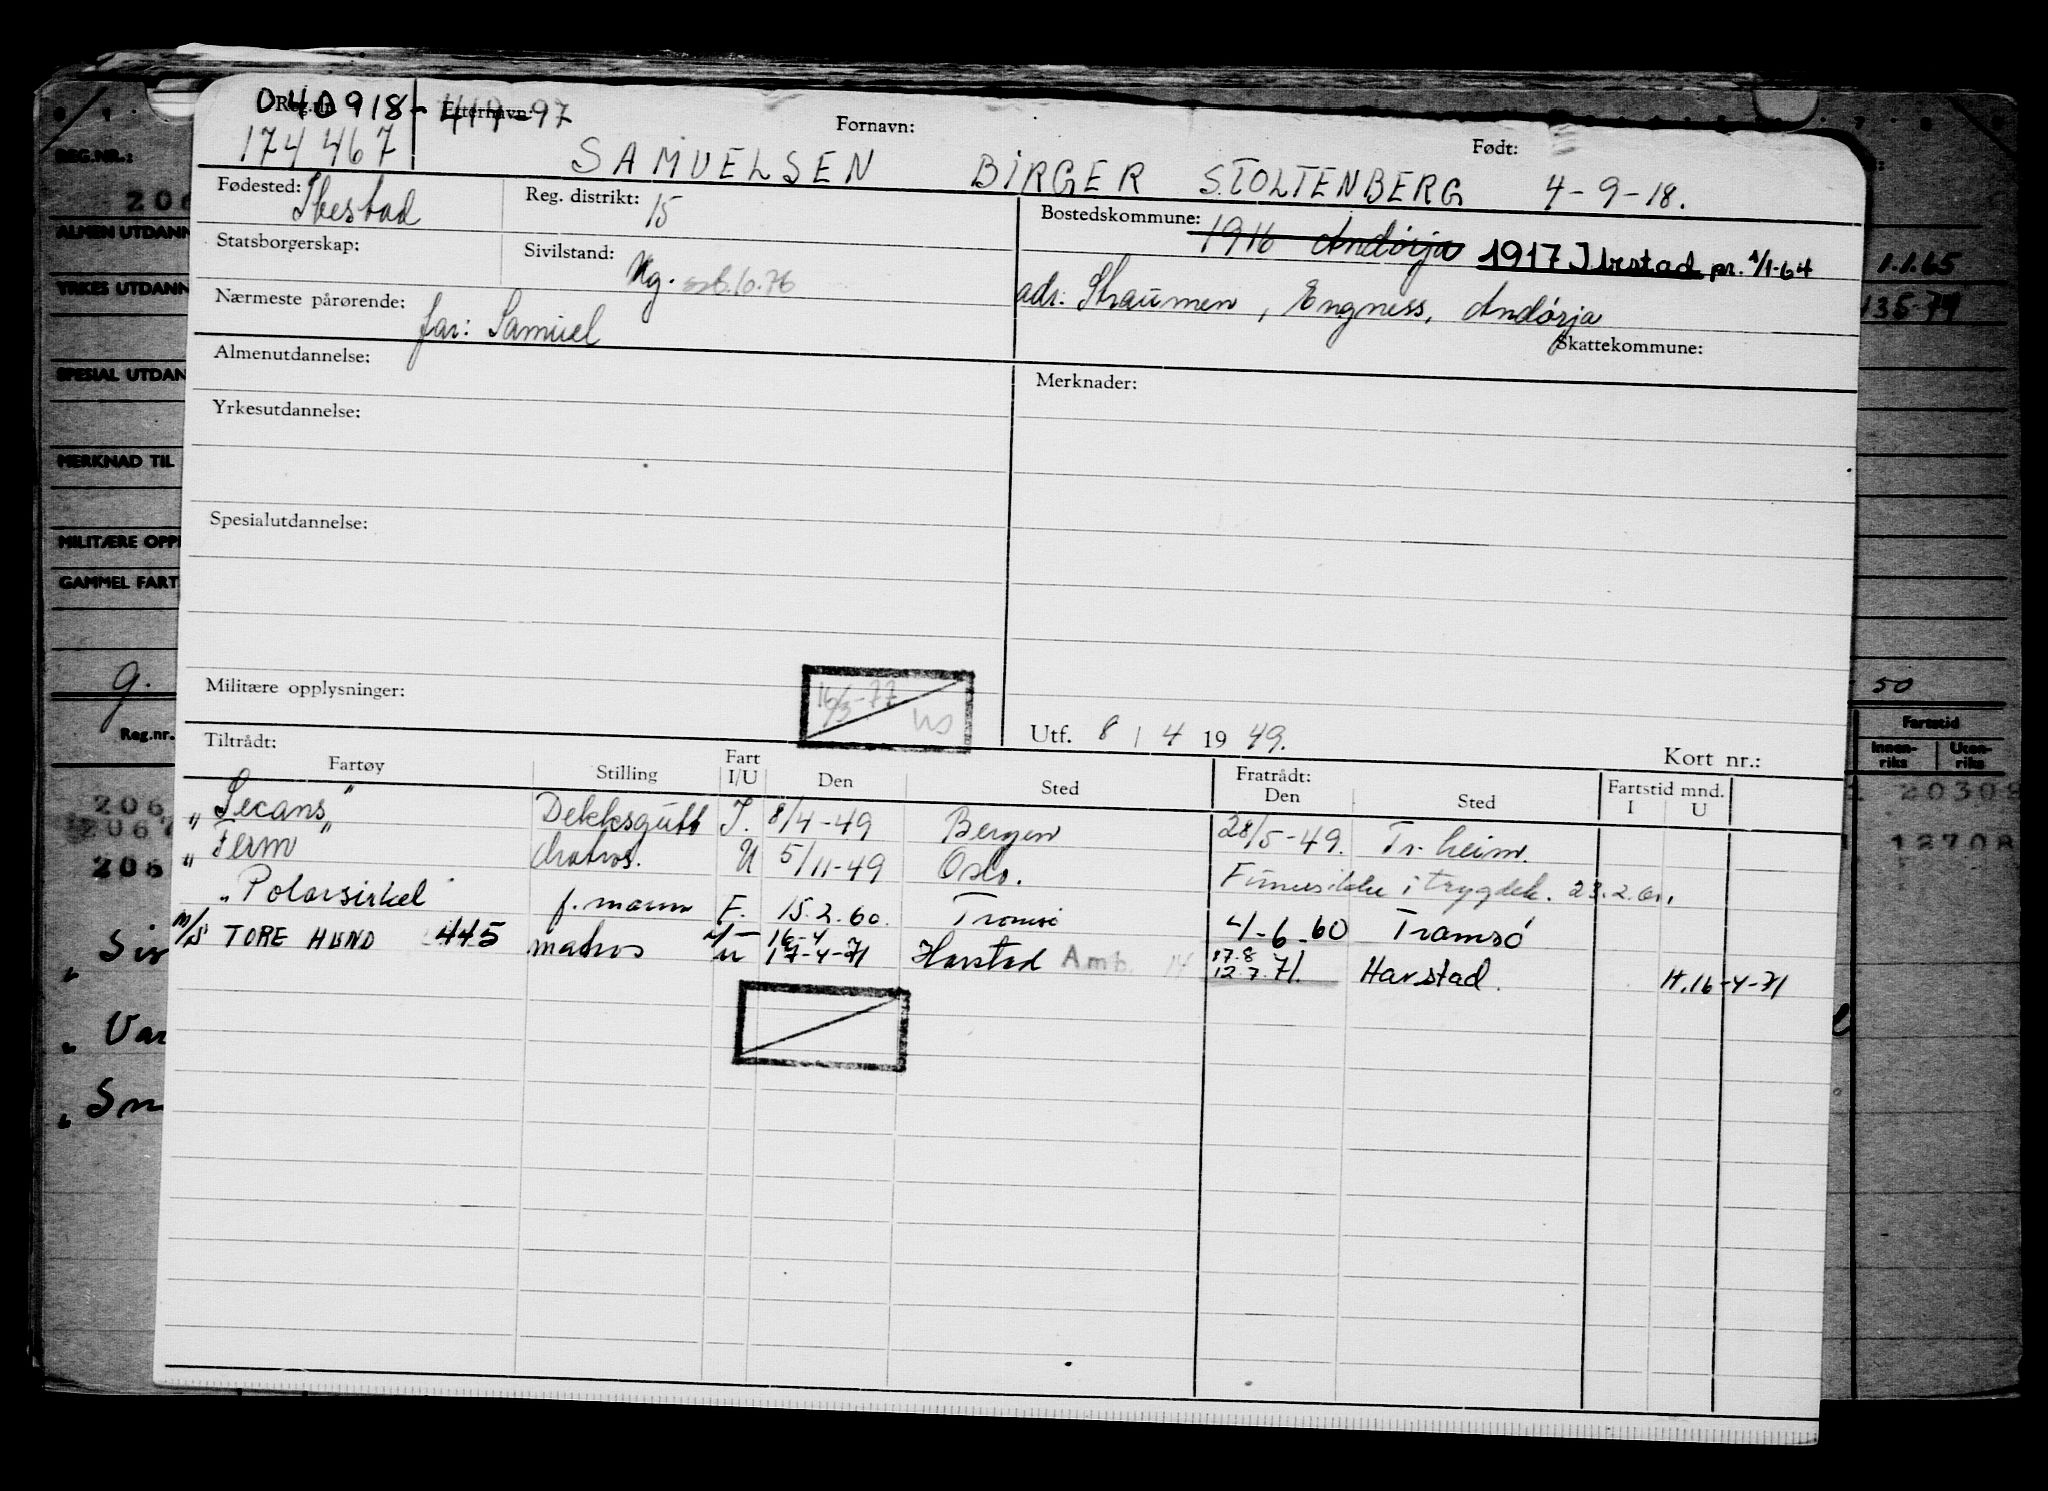 040918-419-97
Reg. nr. Etternavn: Fornavn: Født:
174467 SAMUELSEN BIRGER STOLTENBERG 4-9-18.
Fødested: Ibestad Reg. distrikt: 15 Bostedskommune: 1916 Andørja 1917 Ibestad pr. 1/1-64
Statsborgerskap: Sivilstand: Ug.
adr. Straumen, Engness, Andørja
Nærmeste pårørende: far: Samuel
Skattekommune:
Almenutdannelse: Merknader:
Yrkesutdannelse:
Spesialutdannelse:
Militære opplysninger: 16/3-77
Utf. 8 / 4 1949.
Kort nr.:
Tiltrådt: Fratrådt: Fartstid mnd.
Fartøy Stilling Fart I/U Den Sted Den Sted I U
"Lecans" Dekksgutt I. 8/4-49 Bergen 28/5-49. Tr.heim.
"Fern" Matros. U 5/11-49 Oslo. i trygdek. 23.2.
"Polarsirkel" f.mann F. 15.2.60. Tromsø 4-6-60 Tromsø
M/S TORE HUND 445 matros U 16-4 17-4-71 Harstad Amb. 17.8 12.7.71. Harstad. H.16-4-71
REG.NR.:
206
ALMEN UTDANN
1.1.65
YRKES UTDANN
135-74
SPESIAL UTDAN
MERKNAD TIL
MILITÆRE OPP
GAMMEL FART
g.
50
Reg.nr.
Fartstid
Innenriks Utenriks
206
20308
2067
12708
206
Var